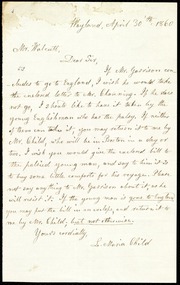 Wayland, April 30th, 1860
Mr. Walcutt,
Dear Sir,
If Mr. Garrison con-
cludes to go to England, I wish he would take
the enclosed letter to Mr. Channing. If he does
not go, I should like to have it taken by the
young Englishman who has the palsy. If neither
of them can take it, you may return it to me by
Mr. Child, who will be in Boston in a day or
two. I wish you would give the enclosed bill to
the palsied young man, and say to him it is
to buy some little comforts for his voyage. Please
not say anything to Mr. Garrison about it; as he
will resist it. If the young man is gone to England
you may put the bill in an envelope, and return it to
me by Mr. Child; but not otherwise.
Yours cordially,
L. Maria Child.